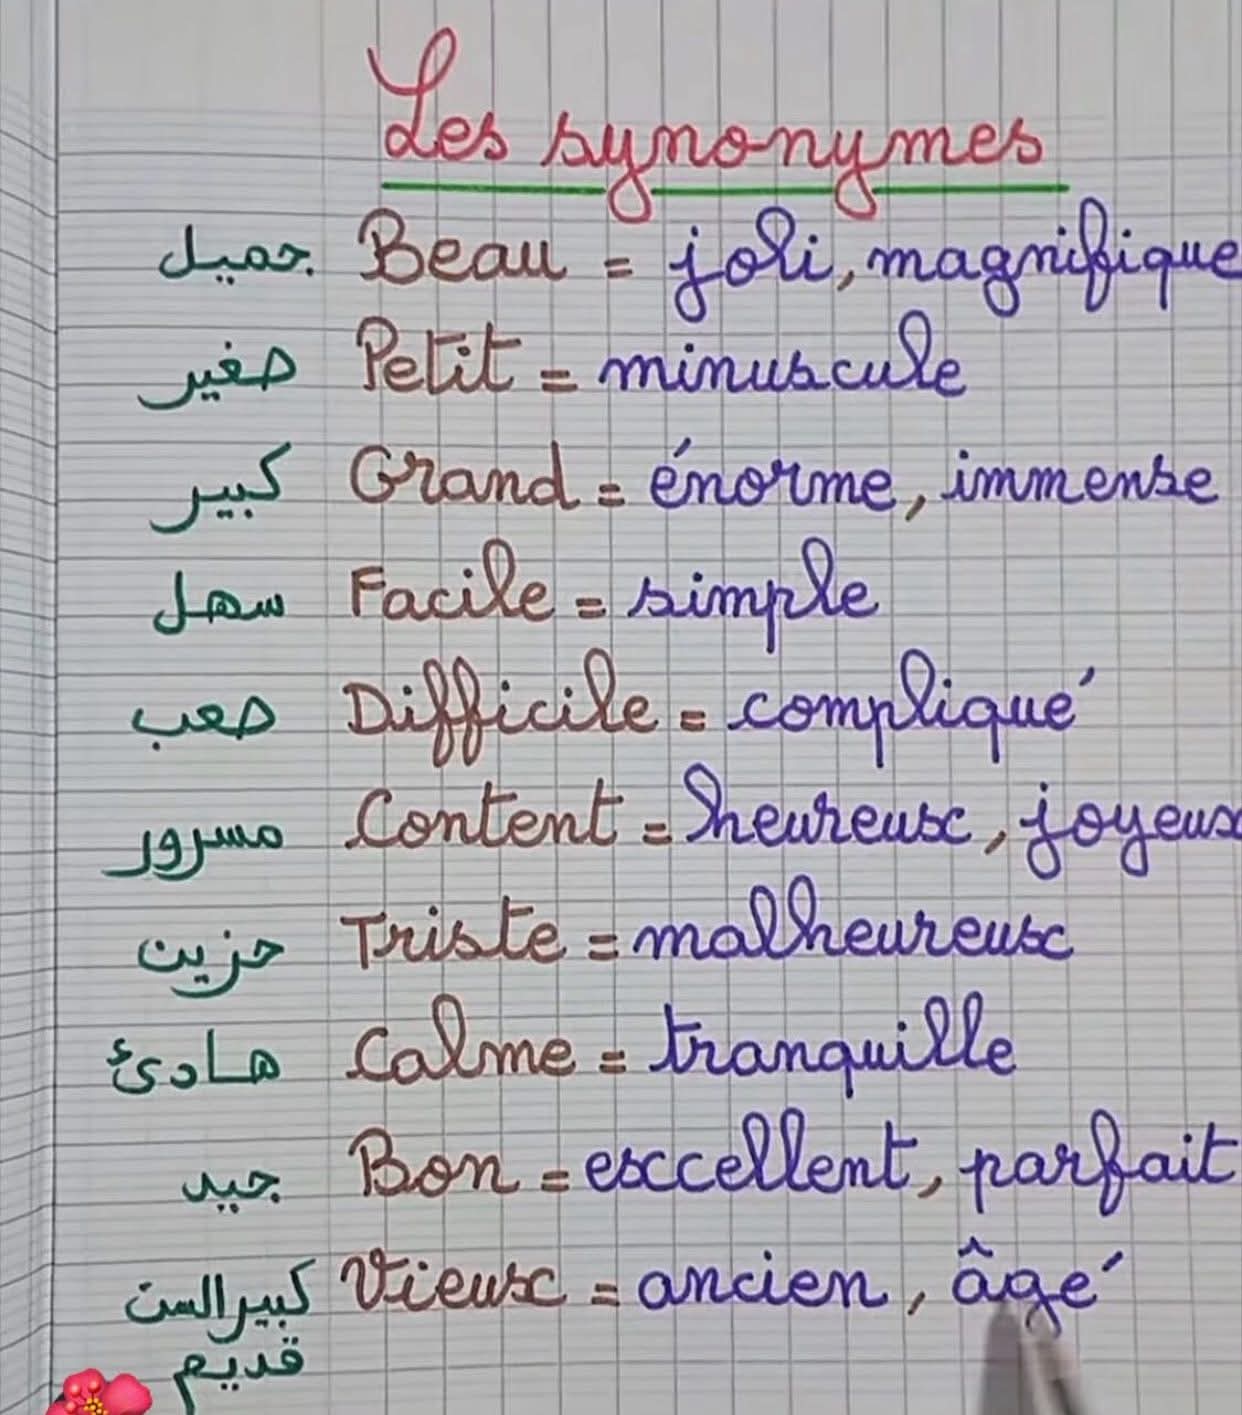 Les synonymes
جميل Beau = joli, magnifique
صغير Petit = minuscule
كبير Grand = énorme, immense
سهل Facile = simple
صعب Difficile = compliqué
مسرور Content = heureux, joyeux
حزين Triste = malheureux
هادئ Calme = tranquille
جيد Bon = excellent, parfait
كبير السن Vieux = ancien, âgé
قديم